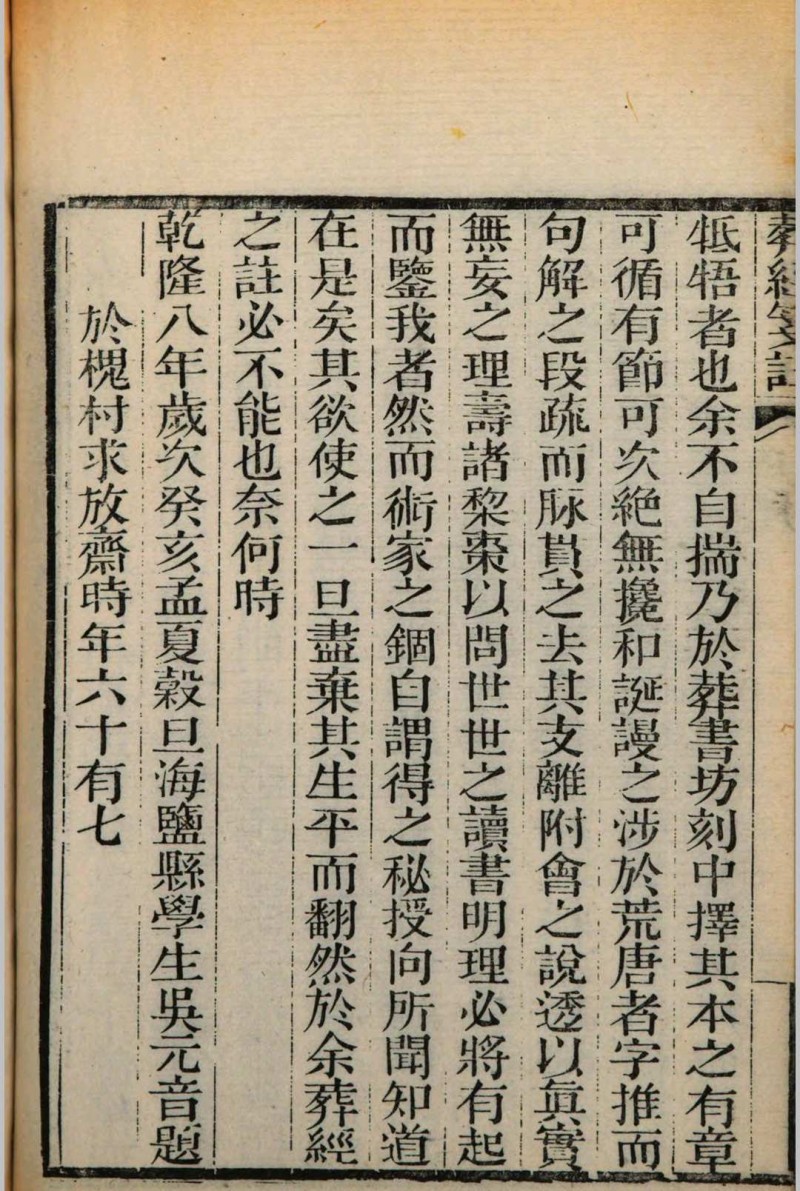 葬經箋註
牴牾者也余不自揣乃於葬書坊刻中擇其本之有章
可循有節可次絶無攙和誕謾之涉於荒唐者字推而
句解之段疏而脉貫之去其支離附會之說透以眞實
無妄之理壽諸棃棗以問世世之讀書明理必將有起
而鑒我者然而術家之錮自謂得之秘授向所聞知道
在是矣其欲使之一旦盡棄其生平而翻然於余葬經
之註必不能也奈何時
乾隆八年歲次癸亥孟夏穀旦海鹽縣學生吳元音題
於槐村求放齋時年六十有七